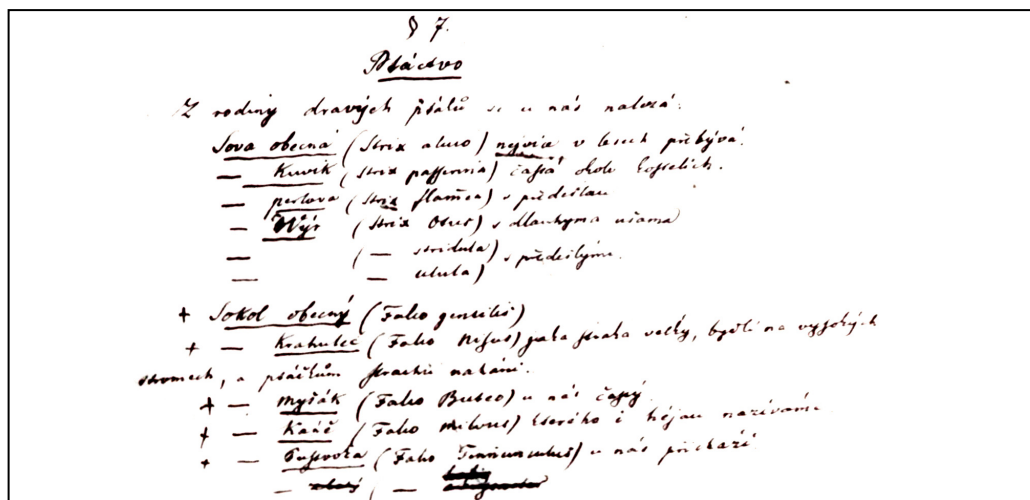 § 7.
Ptáctvo
Z rodiny dravých ptáků se u nás nalezá:
Sova obecná (Strix aluco) nejvíce v lesech přebývá.
— Kuvik (Strix passerina) častá okolo
— perlova (Strix flamea) s předešlau
— Wýr (Strix Otus) s dlauhyma ušama
— (— stridula) s předešlými.
— — ulula)
+ Sokol obecný (Falko gentilis)
+ — Krahulec (Falko Nisus) jako straka velký, bydlí na vyssokých
stromech, a ptáčkům strachu nahání.
+ — Myšák (Falko Buteo) u nás častý.
+ — Káně (Falko Milvus) kterého i nazívame
+ — (Falko Tinnunculus) u nás přichází
— (—